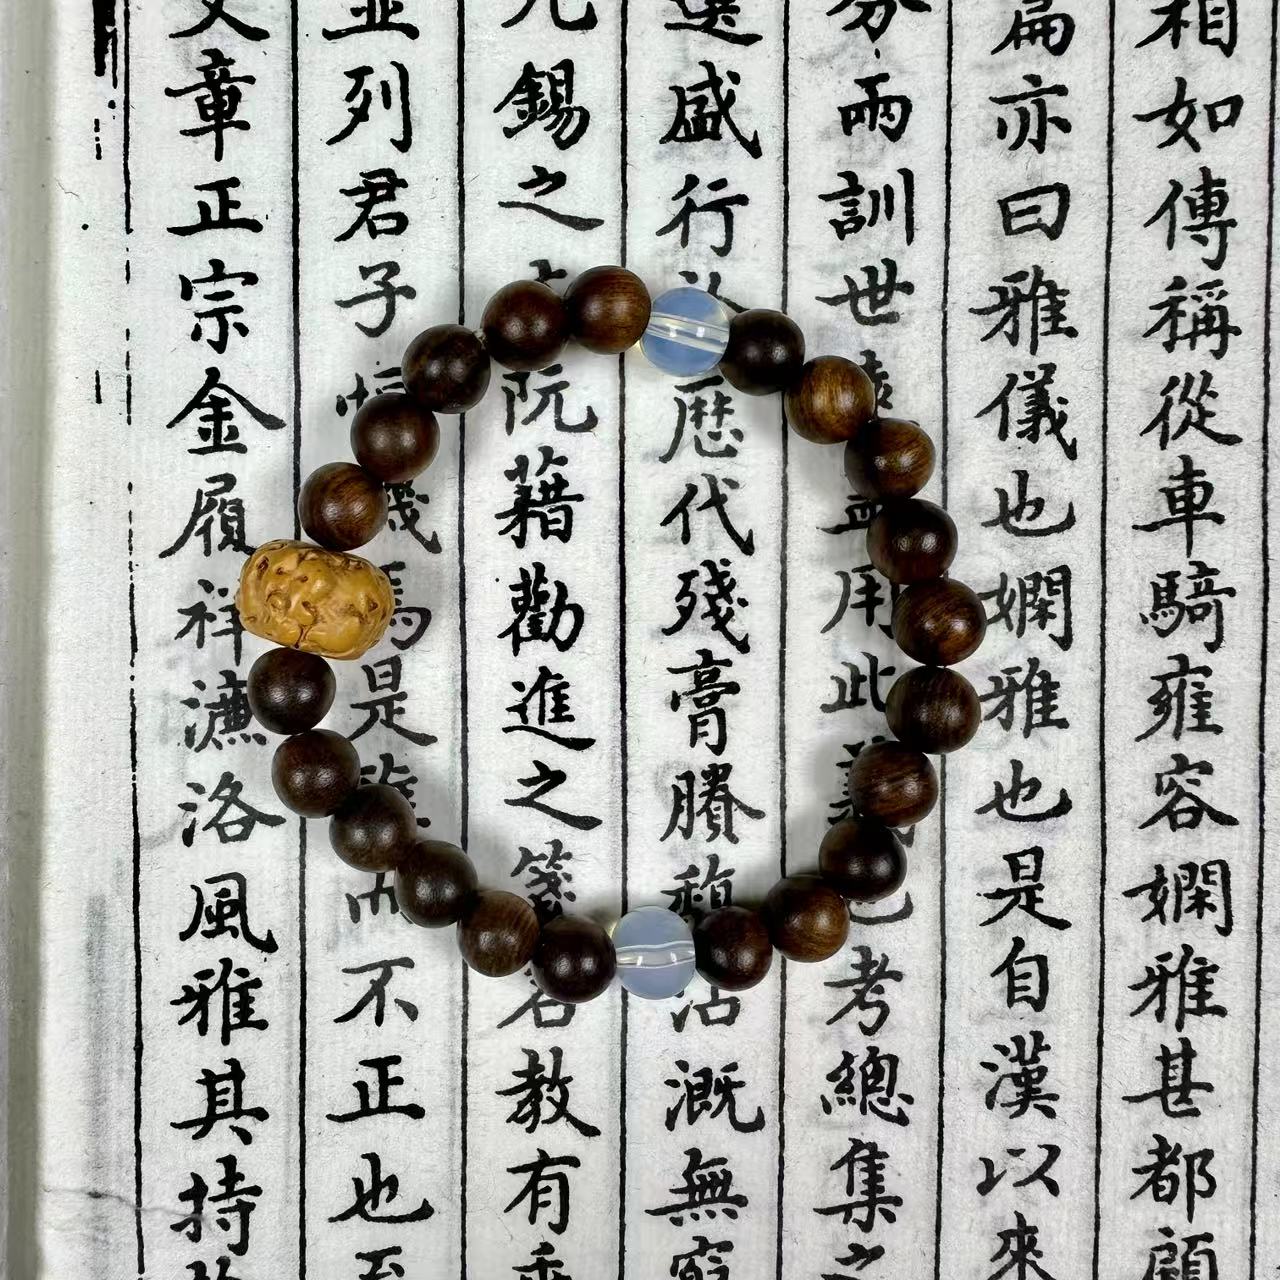 相如傳稱從車騎雍容嫻雅甚都顧
扁亦曰雅儀也嫻雅也是自漢以來
兩訓世用此考總集之
選盛行歷代殘膏賸馥沾溉無窮
錫之阮藉勸進之箋教有
並列君子是不正也至
文章正宗金履祥濂洛風雅其持